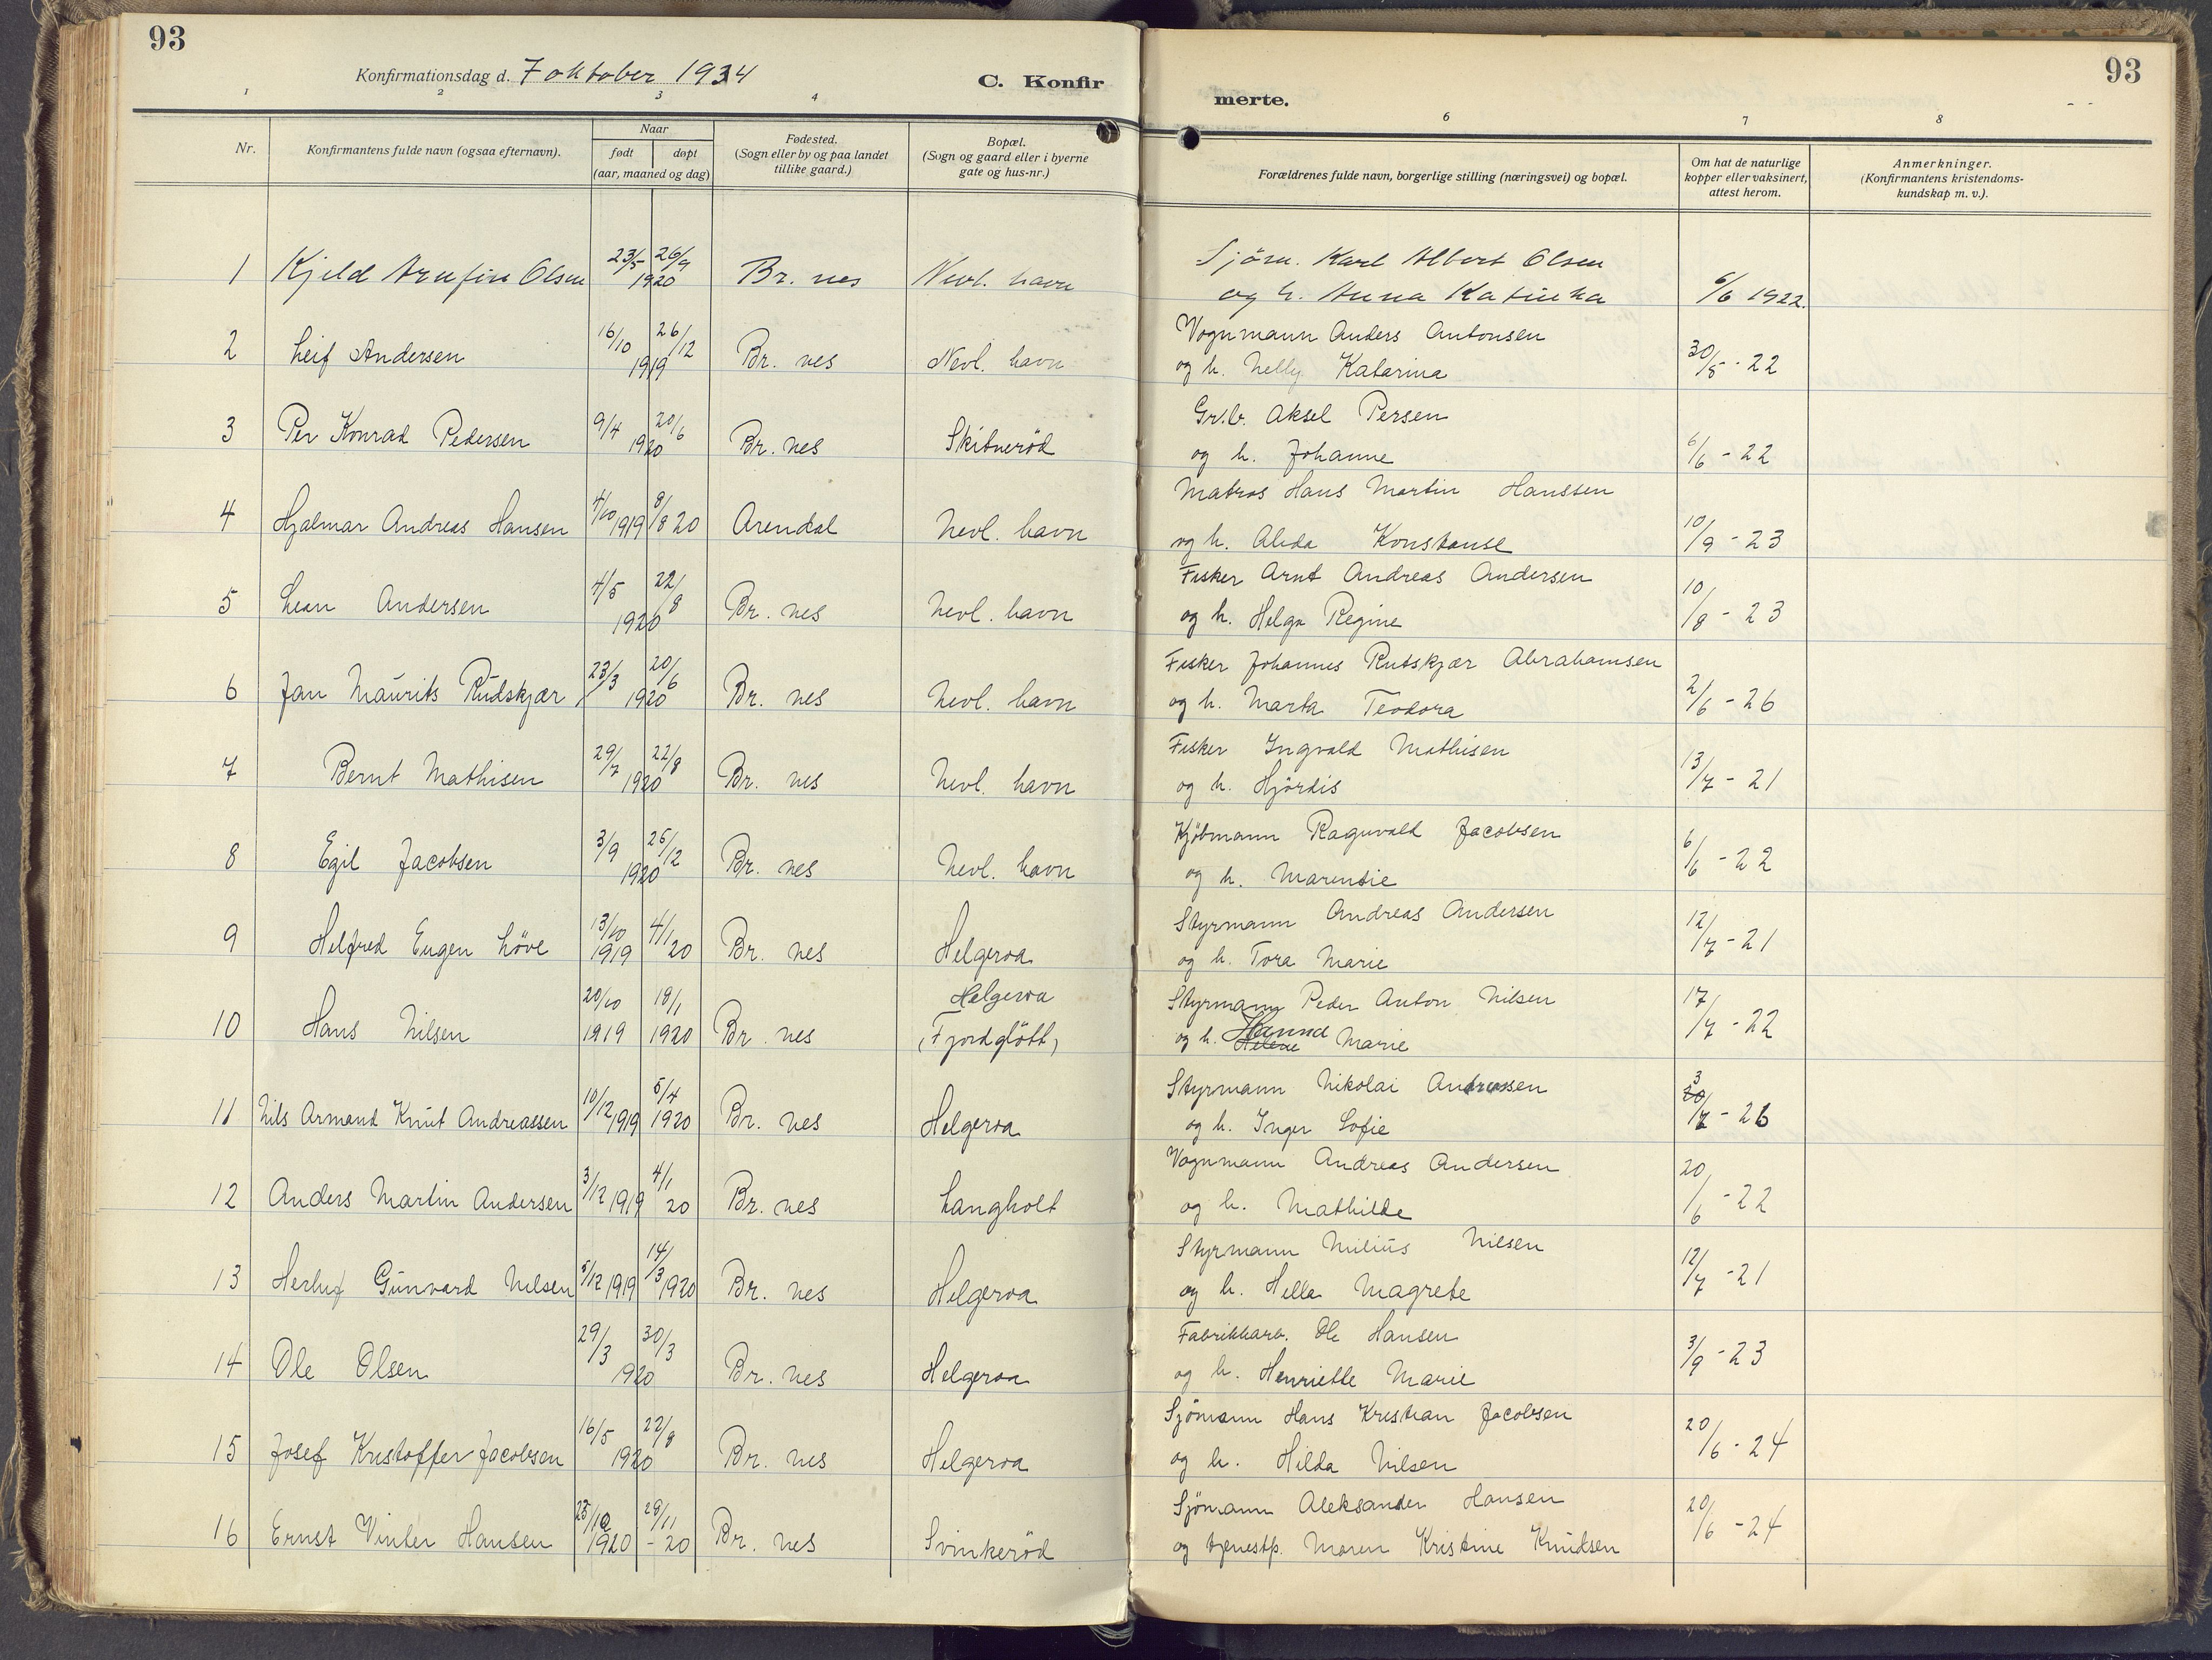 93
93
Konfirmationsdag d. 7 oktober 1934
C. Konfir
merte.
1 2 3 4 6 7 8
Nr. Konfirmantens fulde navn (ogsaa efternavn). Naar født døpt (aar, maaned og dag) Fødested. (Sogn eller by og paa landet tillike gaard.) Bopæl. (Sogn og gaard eller i byerne gate og hus-nr.) Forældrenes fulde navn, borgerlige stilling (næringsvei) og bopæl. Om hat de naturlige kopper eller vaksinert, attest herom. Anmerkninger. (Konfirmantens kristendoms-kundskap m. v.).
1 Kjeld Arnfinn Olsen 23/5 26/9 1920 Br. nes Nevl. havn Sjøm. Karl Albert Olsen
og h. Anna Katinka 6/6 1922.
2 Leif Andersen 16/10 26/12 1919 Br. nes Nevl. havn Vognmann Anders Antonsen
og h. Nelly Katarina 30/5 - 22
3 Per Konrad Pedersen 9/4 20/6 1920 Br. nes Skibnerød Gr.b. Aksel Persen
og h. Johanne 6/6 - 22
4 Hjalmar Andreas Hansen 4/10 1919 8/8 20 Arendal Nevl. havn Matros Hans Martin Hanssen
og h. Alida Konstanse 10/9 - 23
5 Lean Andersen 4/5 22/8 1920 Br. nes Nevl. havn Fisker Arnt Andreas Andersen
og h. Helga Regine 10/8 - 23
6 Jan Maurits Rudskjær 23/3 20/6 1920 Br. nes Nevl. havn Fisker Johannes Rutskjær Abrahamsen
og h. Marta Teodora 2/6 - 26
7 Bernt Mathisen 29/7 22/8 1920 Br. nes Nevl. havn Fisker Ingvald Mathisen
og h. Hjördis 13/7 - 21
8 Egil Jacobsen 3/9 26/12 1920 Br. nes Nevl. havn Kjøbmann Ragnvald Jacobsen
og h. Marentie 6/6 - 22
9 Helfred Eugen Löve 13/10 1919 4/1 20 Br. nes Helgeroa Styrmann Andreas Andersen
og h. Tora Marie 12/7 - 21
10 Hans Nilsen 20/10 1919 18/1 1920 Br. nes Helgeroa (Fjordglött) Styrmann Peder Anton Nilsen
og h. Hanna Helene Marie 17/7 - 22
11 Nils Armand Knut Andreassen 10/12 1919 5/4 1920 Br. nes Helgeroa Styrmann Nikolai Andreassen
og h. Inger Sofie 3 20/7 - 26
12 Anders Martin Andersen 3/12 1919 4/1 20 Br. nes Langholt Vognmann Andreas Andersen
og h. Mathilde 20/6 - 22
13 Herluf Gunvard Nilsen 5/12 1919 14/3 1920 Br. nes Helgeroa Styrmann Milius Nilsen
og h. Hella Magrete 12/7 - 21
14 Ole Olsen 29/3 30/3 1920 Br. nes Helgeroa Fabrikkarb. Ole Hansen
og h. Henriette Marie 3/9 - 23
15 Josef Kristoffer Jacobsen 16/5 22/8 1920 Br. nes Helgeroa Sjömann Hans Kristian Jacobsen
og h. Hilda Nilsen 20/6 - 24
16 Ernst Vinter Hansen 23/10 1920 28/11 - 20 Br. nes Svinkerød Sjömann Aleksander Hansen
og tjenestp. Maren Kristine Knudsen 20/6 - 24